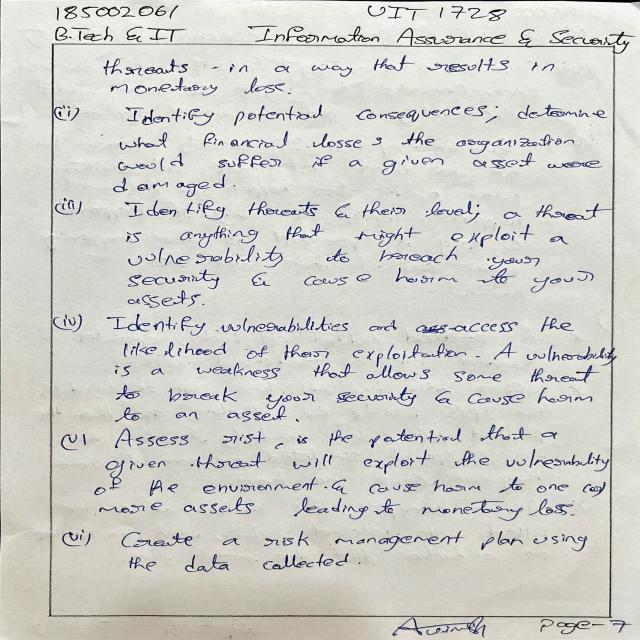 185002061 UIT 1728
B.Tech & IT Information Assurance & Security
threats in a way that results in
monetary loss.
(ii) Identify potential consequences; determine
what financial losses the organization
would suffer if a given asset were
damaged.
(iii) Identify threats & their level; a threat
is anything that might exploit a
vulnerability to breach your
security & cause harm to your
assets.
(iv) Identify vulnerabilities and access the
likelihood of their exploitation. A vulnerability
is a weakness that allows some threat
to break your security & cause harm
to an asset.
(v) Assess rist, is the potential that a
given threat will exploit the vulnerability
of the environment & cause harm to one (or)
more assets leading to monetary loss.
(vi) Create a risk management plan using
the data collected.
Page-7